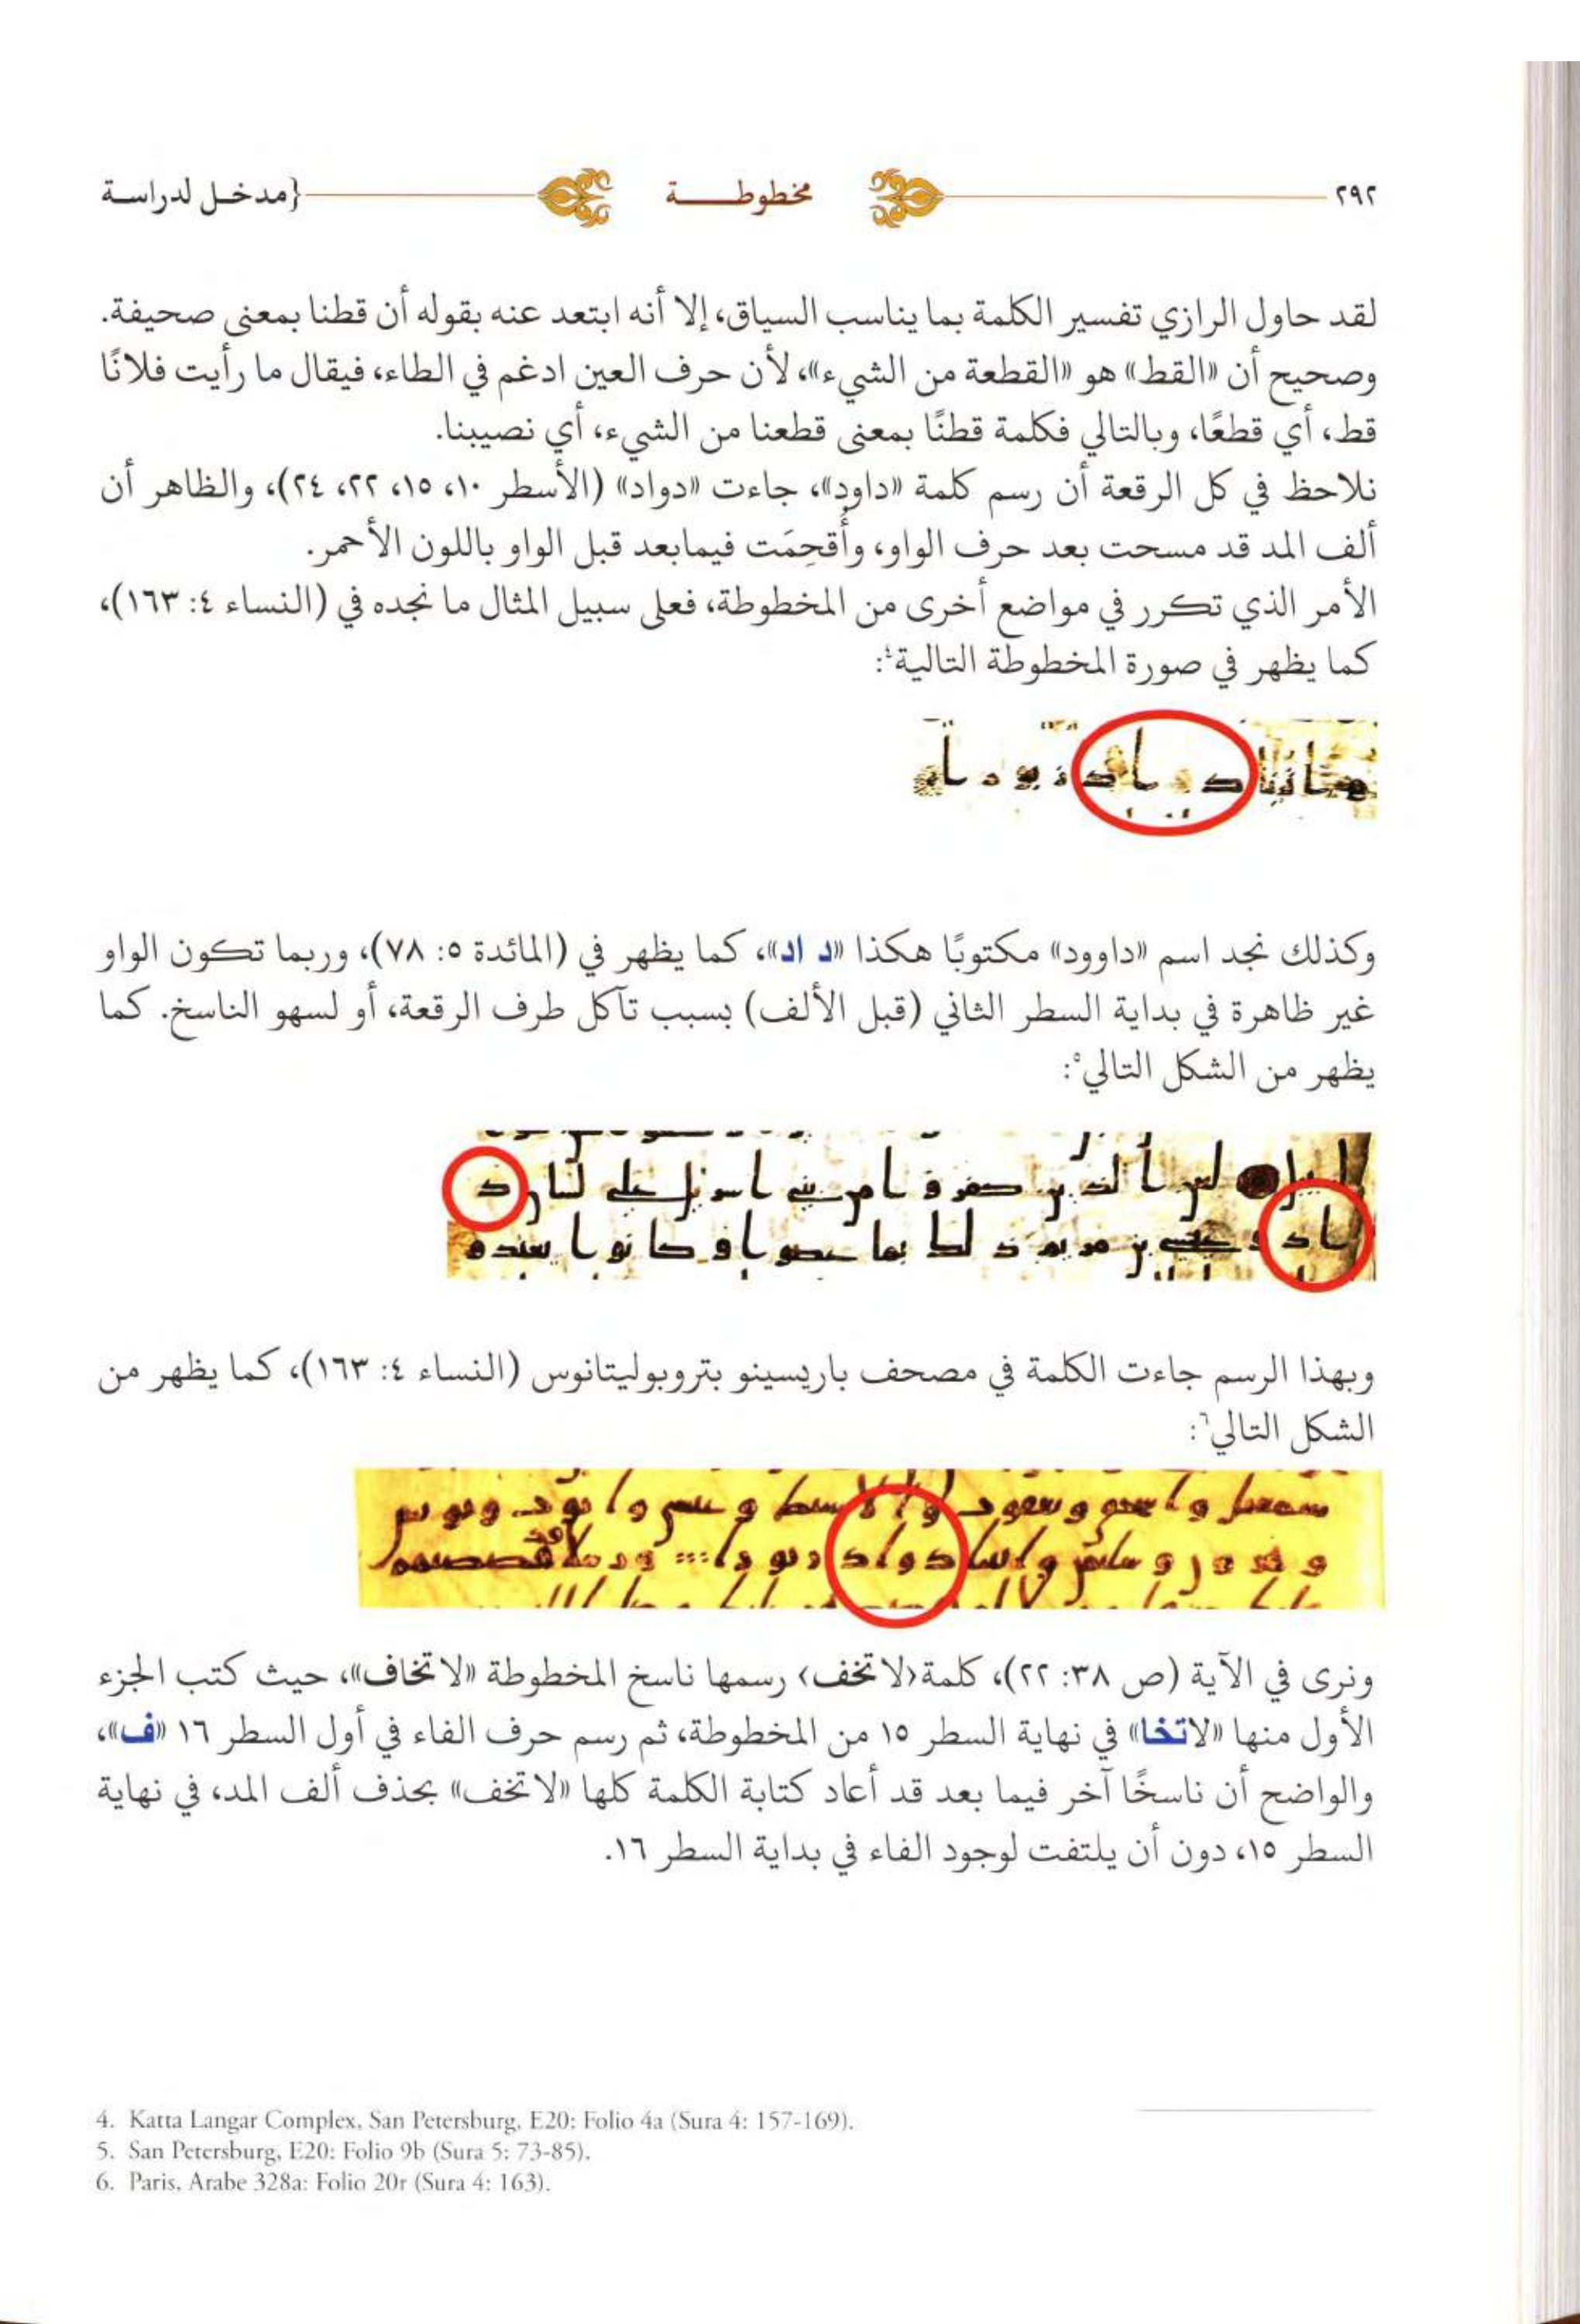 ٢٩٢ مخطوطـــة {مدخـل لدراسـة
لقد حاول الرازي تفسير الكلمة بما يناسب السياق، إلا أنه ابتعد عنه بقوله أن قطنا بمعنى صحيفة.
وصحيح أن «القط» هو «القطعة من الشيء»، لأن حرف العين ادغم في الطاء، فيقال ما رأيت فلانًا
قط، أي قطعًا، وبالتالي فكلمة قطنًا بمعنى قطعنا من الشيء، أي نصيبنا.
نلاحظ في كل الرقعة أن رسم كلمة «داود»، جاءت «دواد» (الأسطر ١٠، ١٥، ٢٢، ٢٤)، والظاهر أن
ألف المد قد مسحت بعد حرف الواو، وأُقحِمَت فيمابعد قبل الواو باللون الأحمر.
الأمر الذي تكرر في مواضع أخرى من المخطوطة، فعلى سبيل المثال ما نجده في (النساء ٤: ١٦٣)،
كما يظهر في صورة المخطوطة التالية٤:
وكذلك نجد اسم «داوود» مكتوبًا هكذا «د اد»، كما يظهر في (المائدة ٥: ٧٨)، وربما تكون الواو
غير ظاهرة في بداية السطر الثاني (قبل الألف) بسبب تآكل طرف الرقعة، أو لسهو الناسخ. كما
يظهر من الشكل التالي٥:
وبهذا الرسم جاءت الكلمة في مصحف باريسينو بتروبوليتانوس (النساء ٤: ١٦٣)، كما يظهر من
الشكل التالي٦:
ونرى في الآية (ص ٣٨: ٢٢)، كلمة ‹لا تخف› رسمها ناسخ المخطوطة «لا تخاف»، حيث كتب الجزء
الأول منها «لاتخا» في نهاية السطر ١٥ من المخطوطة، ثم رسم حرف الفاء في أول السطر ١٦ «ف»،
والواضح أن ناسخًا آخر فيما بعد قد أعاد كتابة الكلمة كلها «لا تخف» بحذف ألف المد، في نهاية
السطر ١٥، دون أن يلتفت لوجود الفاء في بداية السطر ١٦.
4. Katta Langar Complex, San Petersburg, E20: Folio 4a (Sura 4: 157-169).
5. San Petersburg, E20: Folio 9b (Sura 5: 73-85).
6. Paris, Arabe 328a: Folio 20r (Sura 4: 163).